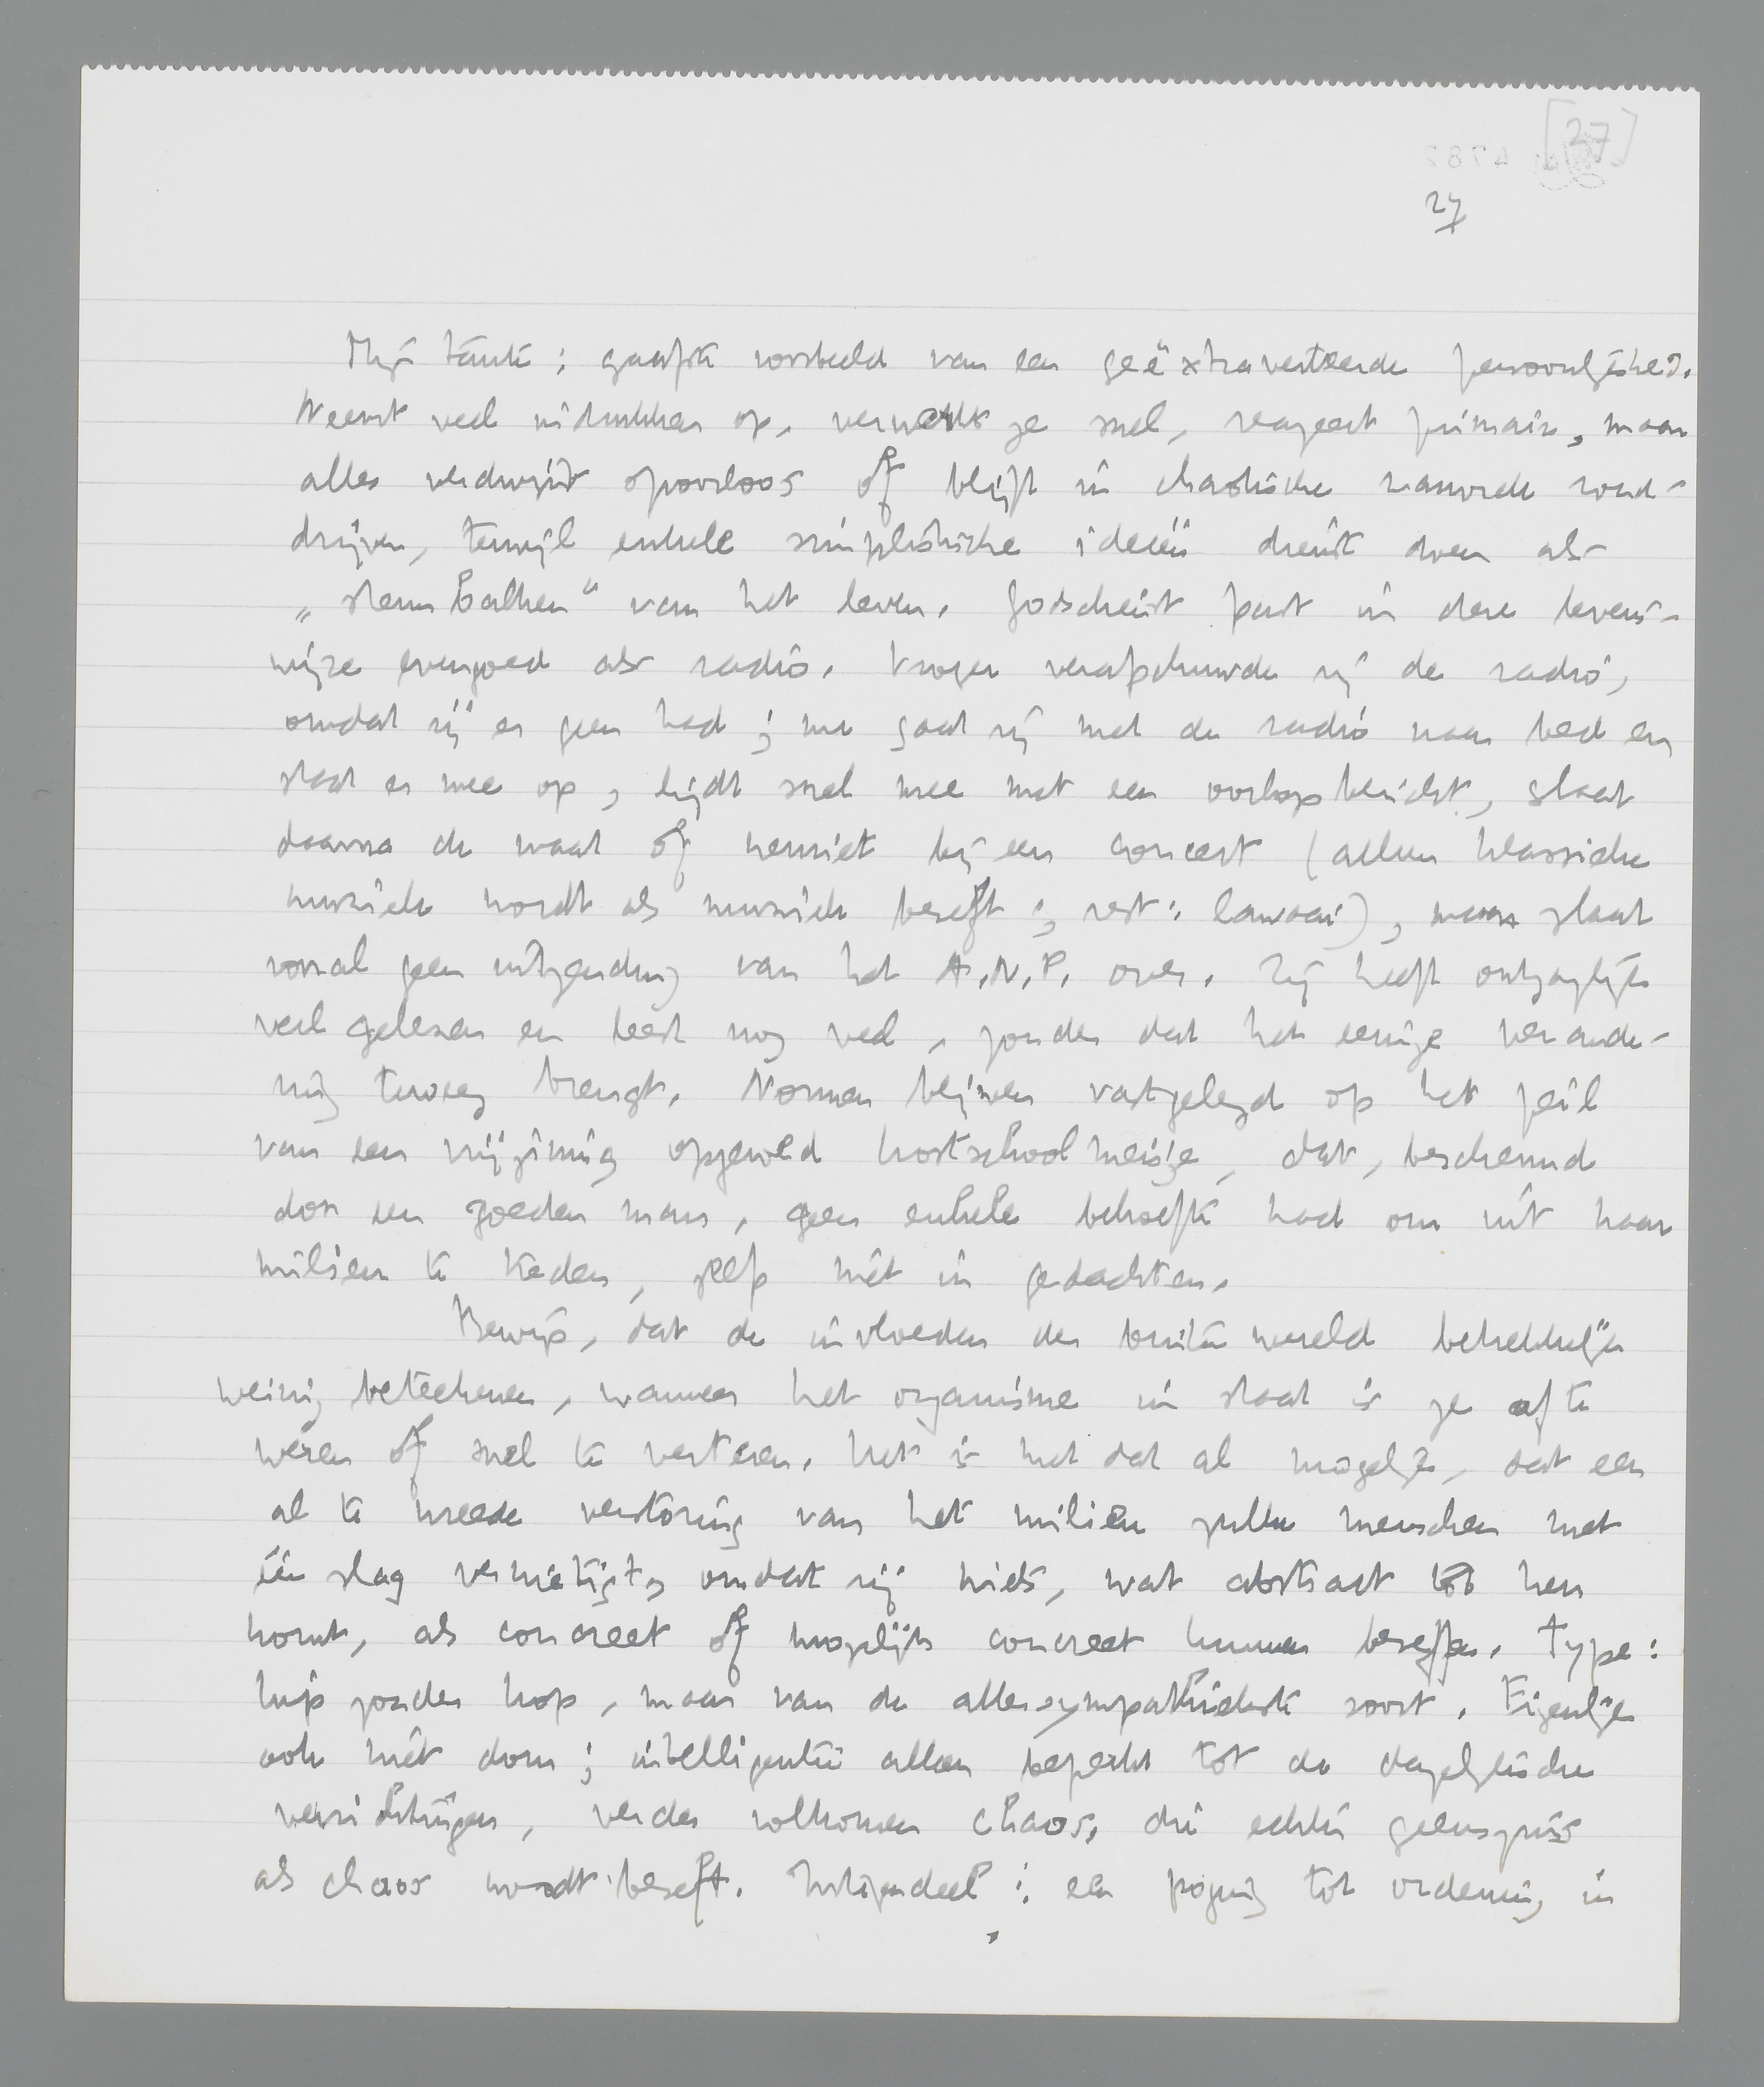 [27]
27
Mijn tante: gaafste voorbeeld van een geëxtraverteerde persoonlijkheid.
Neemt veel indrukken op, verwerkt ze snel, reageert primair, maar
alles verdwijnt spoorloos óf blijft in chaotische massa rond-
drijven, terwijl enkele simplistische ideeën dienst doen als
„steunbalken” van het leven. Godsdienst past in deze levens-
wijze evengoed als radio. Vroeger verafschuwde zij de radio,
omdat zij er geen had; nu gaat zij met de radio naar bed en
staat er mee op, lijdt snel mee met een oorlogsbericht, slaat
daarna de maat of geniet bij een concert (alleen klassieke
muziek wordt als muziek beseft; rest: lawaai), maar slaat
vooral geen uitzending van het A.N.P. over. Zij heeft ontzaglijk
veel gelezen en leest nog veel, zonder dat het eenige verande-
ring teweeg brengt. Normen blijven vastgelegd op het peil
van een vrijzinnig opgevoed kostschoolmeisje, dat, beschermd
door een goeden man, geen enkele behoefte had om uit haar
milieu te treden, zelfs niet in gedachten.
Bewijs, dat de invloeden der buitenwereld betrekkelijk
weinig beteekenen, wanneer het organisme in staat is ze af te
weren óf snel te verteren. Het is met dat al mogelijk, dat een
al te wreede verstoring van het milieu zulke menschen met
één slag vernietigt, omdat zij niets, wat abstract tot hen
komt, als concreet óf mogelijk concreet kunnen beseffen. Type:
kip zonder kop, maar van de allersympathiekste soort. Eigenlijk
ook niet dom; intelligentie alleen beperkt tot de dagelijksche
verrichtingen, verder volkomen chaos, die echter geenszins
als chaos wordt beseft. Integendeel: een poging tot ordening in